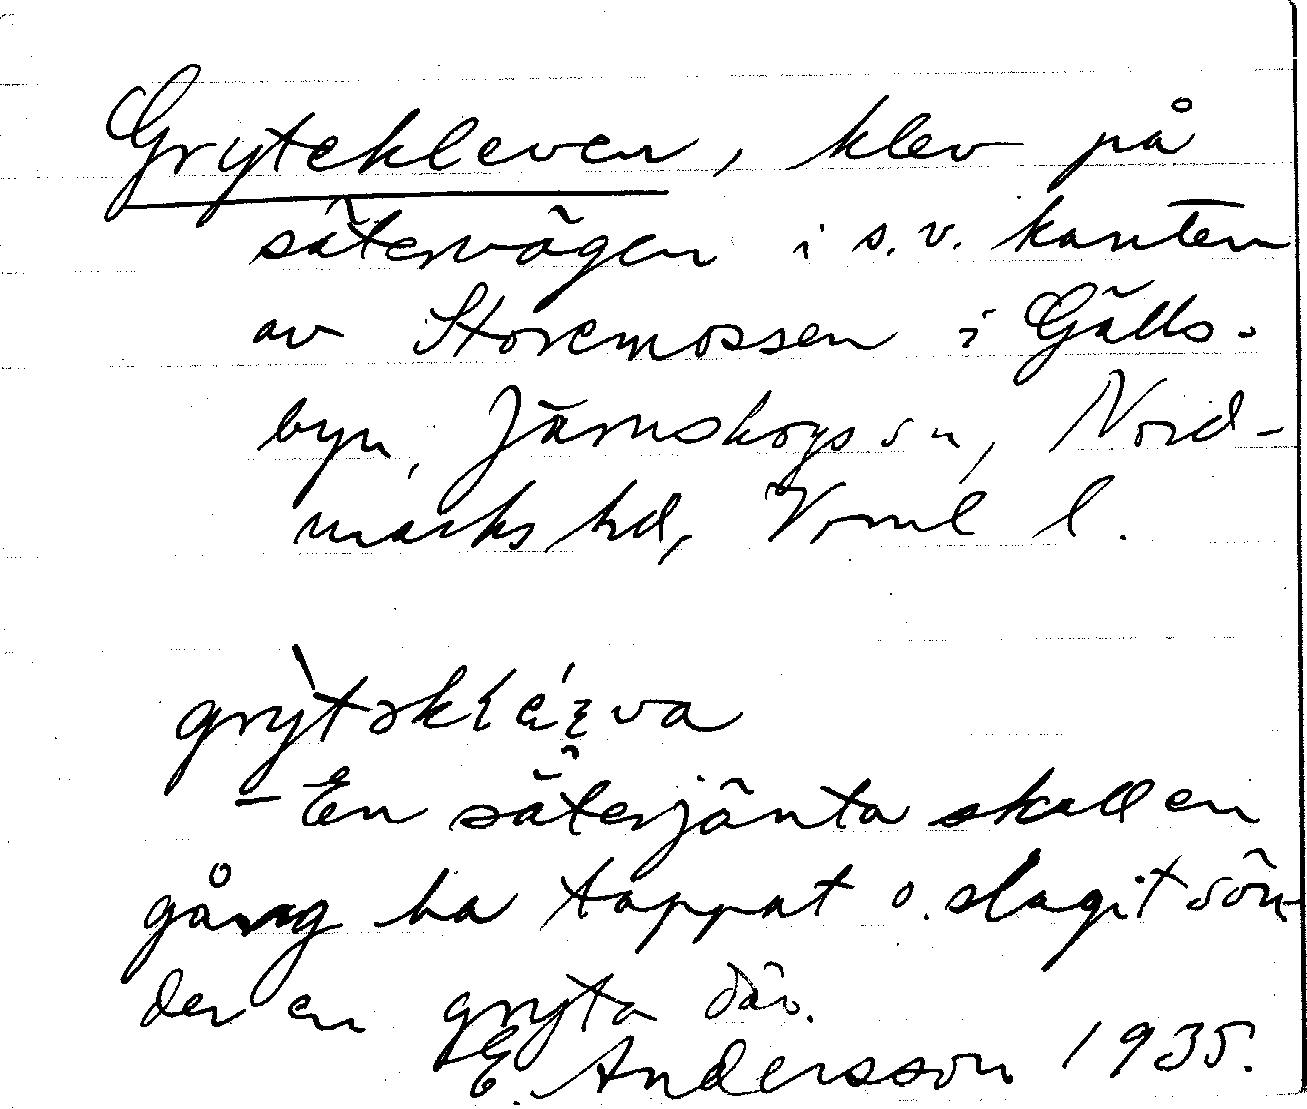 Grytekleven, klev på
sätervägen i s.v. kanten
av Storemossen i Gälls-
byn, Järnskogs sn, Nord-
marks hd, Vrml l.
– En säterjänta skall en
gång ha tappat o. slagit sön-
der en gryta där.
E. Andersson 1935.